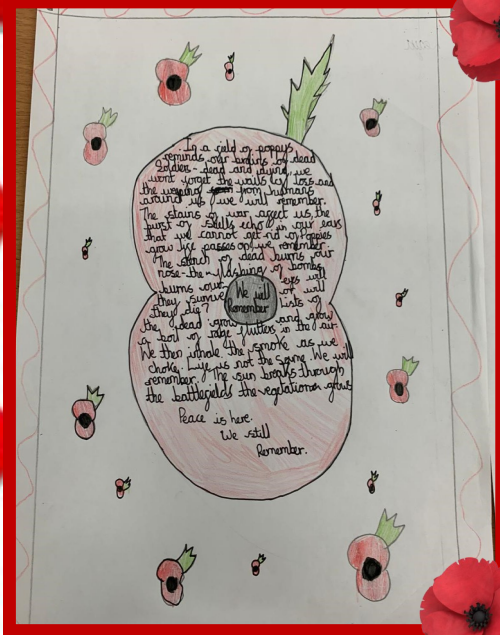 In a field of poppys
reminds our brains of dead
Soldiers - dead and dying, we
wont forget the wails of loss and
the from humans
around us, we will remember.
The stains of war affect us, the
burst of shells echo in our ears
that we cannot get rid of poppies
grow life passes on, we remember.
The stench of dead burns our
nose - the flashing of bombs
burns our eyes will
they survive or will
they die? Lists of
the dead grow and grow
a of rage flutters in the air.
We then inhale the smoke as we
choke. Life is not the same. We will
remember. The sun breaks through
the battlefields the vegetation grows
We will
Remember
Peace is here.
We still
Remember.